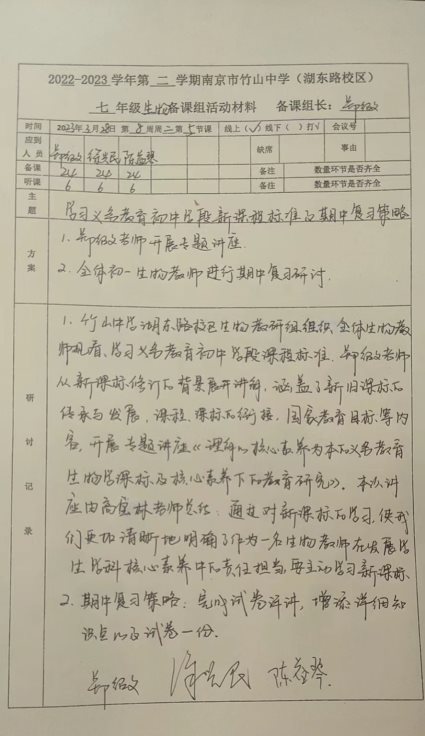 2022-2023学年第 二 学期南京市竹山中学（湖东路校区）
七 年级生物备课组活动材料 备课组长：郑绍文
时间 2023年3月28日 第 8 周周二第 5 节课 线上（√）线下（ ）打√ 会议号
应到人员 郑绍文 陈益琴 缺席 事由
备课 24 24 24 备注 数量环节是否齐全
听课 6 6 6 备注 数量环节是否齐全
主题 学习义务教育初中学段新课程标准及期中复习策略
方案
1. 郑绍文老师开展专题讲座.
2. 全体初一生物教师进行期中复习研讨.
研讨记录
1. 竹山中学湖东路校区生物教研组组织全体生物教
师观看、学习义务教育初中学段课程标准. 郑绍文老师
从新课标修订的背景展开讲解, 涵盖了新旧课标的
传承与发展, 课程、课标的衔接, 国家教育目标等内
容, 开展专题讲座《理解以核心素养为本的义务教育
生物学课标及核心素养下的教育研究》. 本次讲
座由高 林老师总结: 通过对新课标的学习, 使我
们更加清晰地明确了作为一名生物教师在发展学
生学科核心素养中的责任担当, 要主动学习新课标.
2. 期中复习策略: 完成试卷评讲, 增添详细知
识点以及试卷一份.
郑绍文 陈益琴